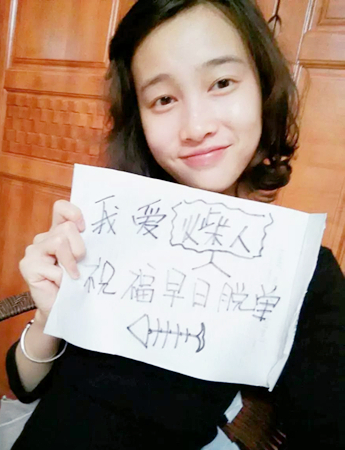 我爱火柴人
祝福早日脱单